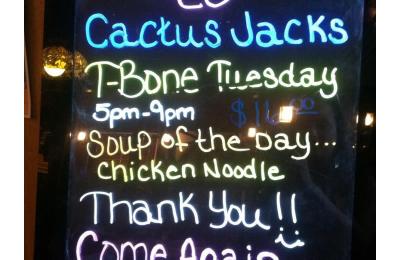 Cactus Jacks
T-Bone Tuesday
5pm-9pm
Soup of the Day...
Chicken Noodle
Thank You!!
Come Again